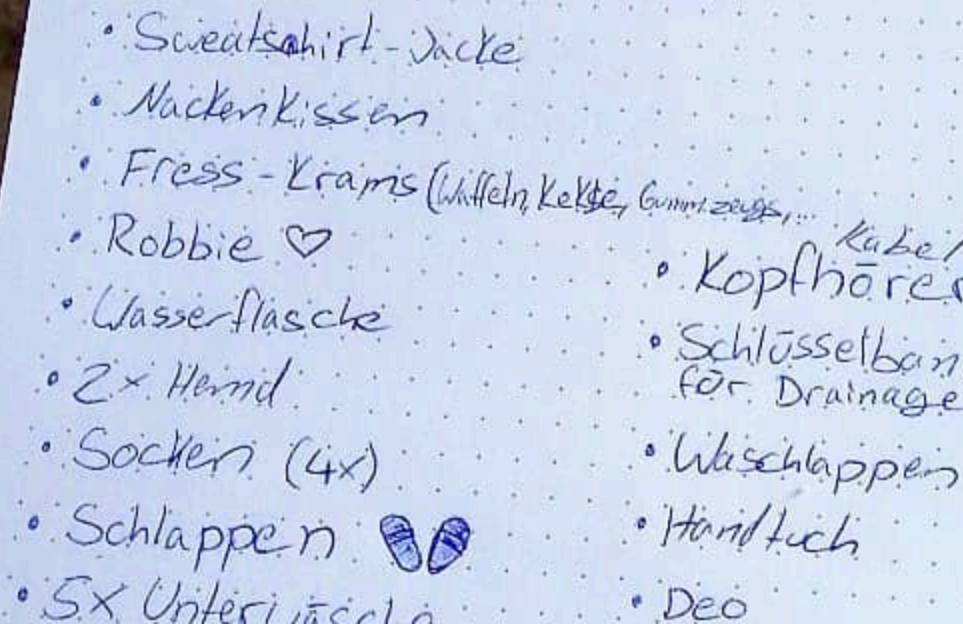 • Sweatshirt-Jacke
• Nackenkissen
• Fress-Krams (Waffeln, Kekse, Gummizeugs,...
• Robbie ♡
• Wasserflasche
• 2x Hemd
• Socken (4x)
• Schlappen
• 5x Unterwäsche
Kabel
• Kopfhörer
• Schlüsselban
für Drainage
• Waschlappen
• Handtuch
• Deo